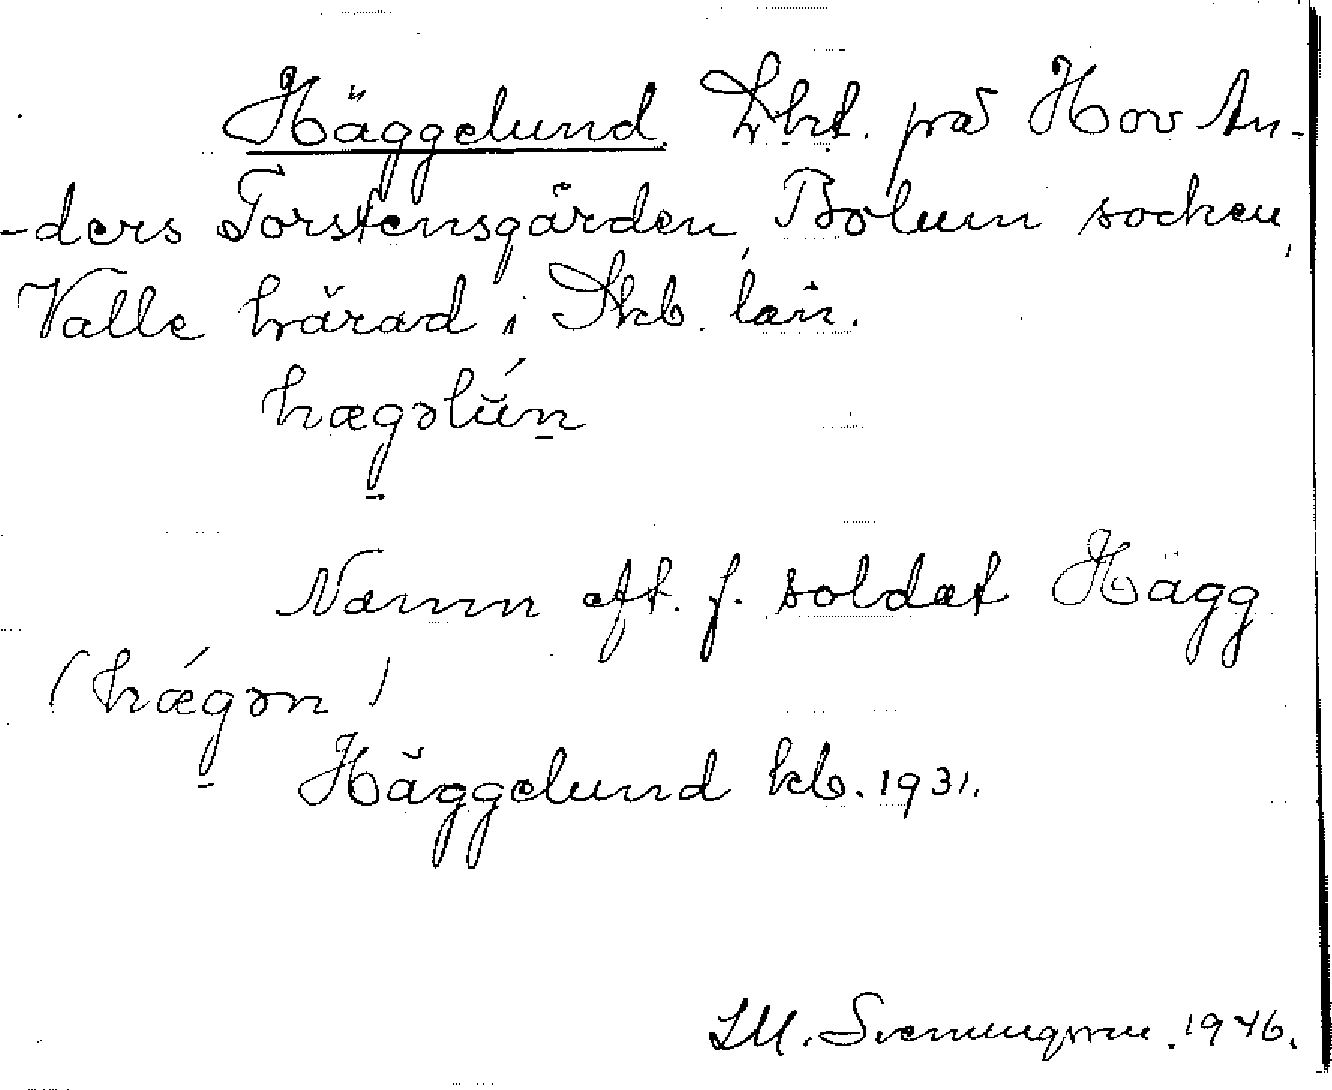 Häggelund. Lht. på Hov An-
-ders Torstensgården, Bolum socken,
Valle härad i Skb. län.
hægəlún
Namn eft. f. soldat Hägg
(hǽgən)
Häggelund kb. 1931.
Svenungsson. 1946.